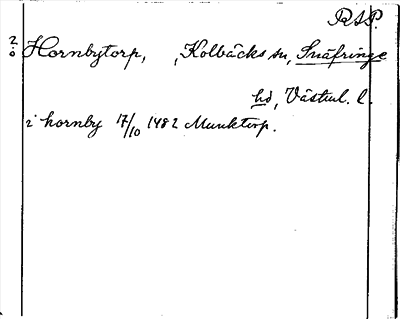 RSP.
2 Hornbytorp, Kolbäcks sn, Snäfringe
o
hd, Västml. l.
i hornby 17/10 1482 Munktorp.